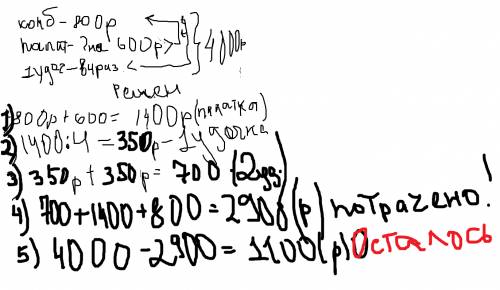 комб - 800р
палат - ? на 600р> 4000р
1 удоч - в 4 раз <
Решен
1) 800р + 600 = 1400р (палатка)
2) 1400:4 = 350р - 1 удочка
3) 350р + 350р = 700 (2 уд.)
4) 700 + 1400 + 800 = 2900 (р) потрачено!
5) 4000 - 2900 = 1100 (р) Осталось